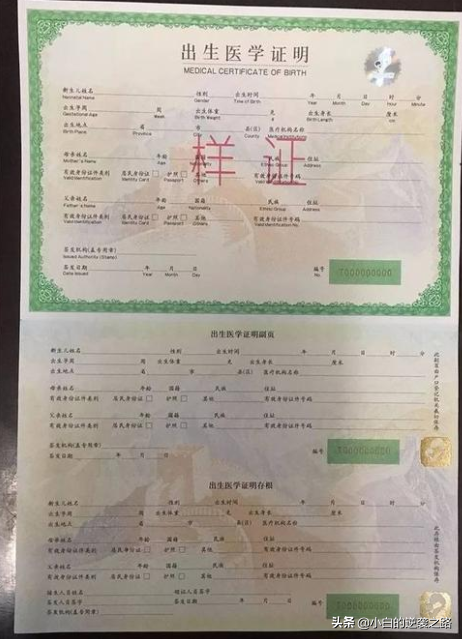 出生医学证明
MEDICAL CERTIFICATE OF BIRTH
新生儿姓名 性别 出生时间 年 月 日 时 分
Neonatal Name Gender Time of Birth Year Month Day Hour Minute
出生孕周 周 出生体重 克 出生身长 厘米
Gestational Age Week Birth Weight g Birth Length cm
出生地点 省 市 县(区) 医疗机构名称
Birth Place Province City County Medical Institutions
样证
母亲姓名 年龄 国籍 民族 住址
Mother's Name Age Nationality Ethnic Group Address
有效身份证件类别 居民身份证 护照 其他 有效身份证件号码
Identity Card Passport Others Valid Identification No.
父亲姓名 年龄 国籍 民族 住址
Father's Name Age Nationality Ethnic Group Address
有效身份证件类别 居民身份证 护照 其他 有效身份证件号码
Identity Card Passport Others Valid Identification No.
签发机构(盖专用章)
Issued Authority (Stamp)
签发日期 年 月 日 编号
Date Issued Year Month Day No.
出生医学证明副页
新生儿姓名 性别 出生时间 年 月 日 时 分
出生孕周 周 出生体重 克 出生身长 厘米
出生地点 省 市 县(区) 医疗机构名称
母亲姓名 年龄 国籍 民族 住址
有效身份证件类别 居民身份证 护照 其他 有效身份证件号码
父亲姓名 年龄 国籍 民族 住址
有效身份证件类别 居民身份证 护照 其他 有效身份证件号码
签发机构(盖专用章)
签发日期 年 月 日 编号
出生医学证明存根
新生儿姓名 性别 出生时间 年 月 日 时 分
出生孕周 周 出生体重 克 出生身长 厘米
出生地点 省 市 县(区) 医疗机构名称
母亲姓名 年龄 国籍 民族 住址
有效身份证件类别 居民身份证 护照 其他 有效身份证件号码
父亲姓名 年龄 国籍 民族 住址
有效身份证件类别 居民身份证 护照 其他 有效身份证件号码
签发人员签字
签发机构(盖专用章)
头条 @小白的逆袭之路